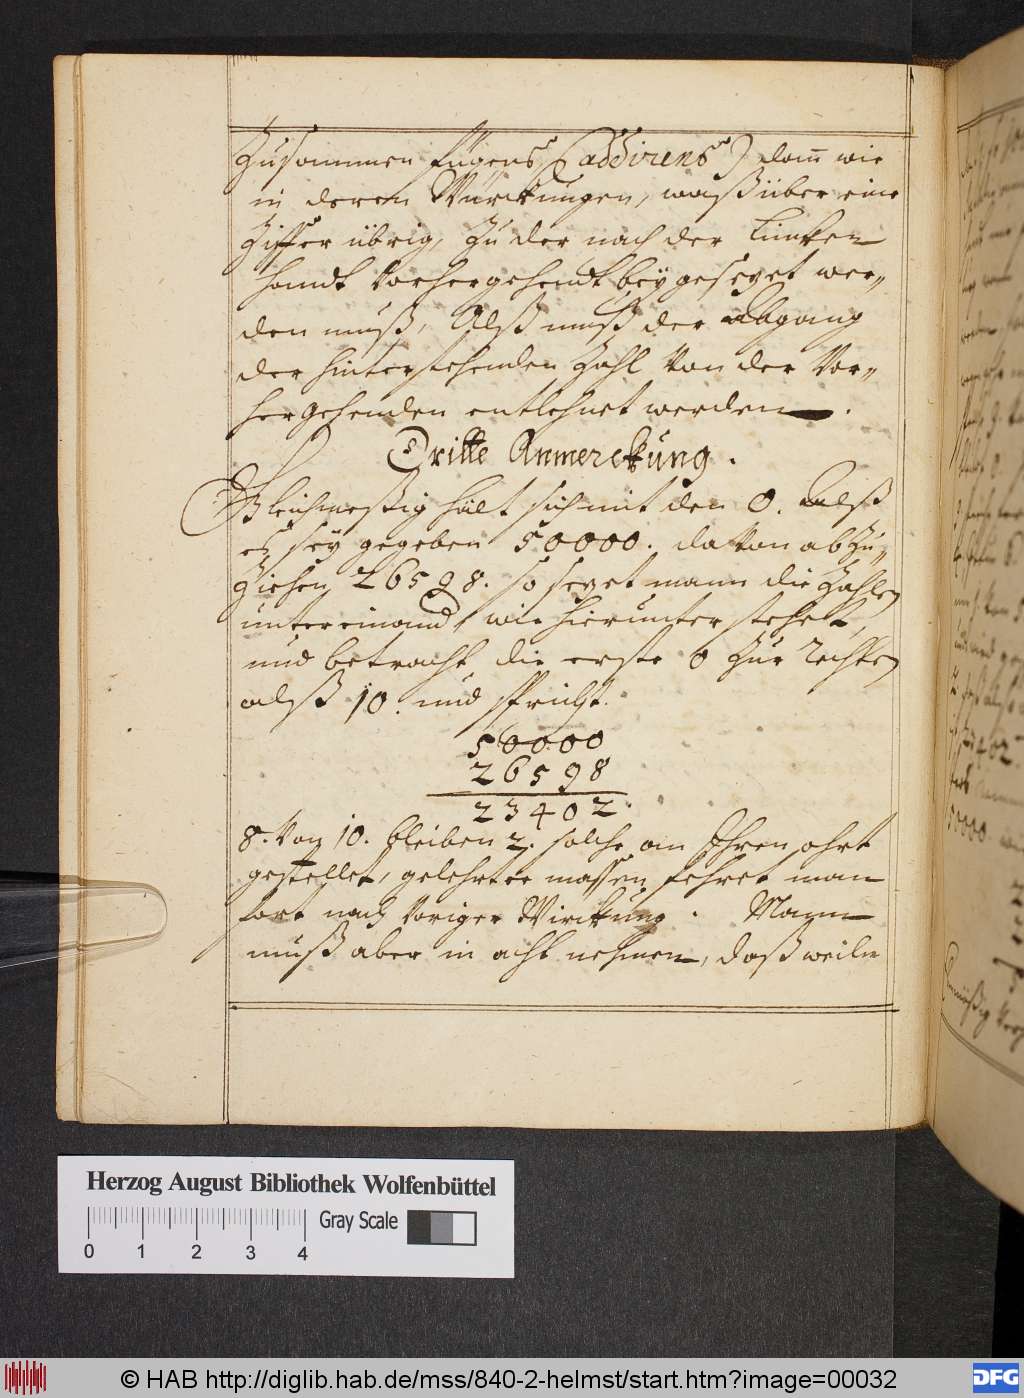 Zusammen fügens (addirens) dann wie
in deren Würckungen, waß über eine
Ziffer übrig, zu der nach der Lincken
handt vorhergehendt beygesezet wer„
den muß, Alß muß der Abgang
der hinterstehenden Zahl von der vor„
hergehenden entlehnet werden.
Dritte Anmerckung.
Gleichmeßig hält sich mit den 0. Alß
es sey gegeben 50000. davon abzu„
ziehen 26598. so sezet mann die Zahlen
untereinand, wie hierunter stehet,
und betracht die erste 0 zur rechten
alß 10. und spricht.
50000
26598
23402.
8. von 10. bleiben 2. solche an Ihren ohrt
gestellet, gelehrter massen fehret man
fort nach voriger Wirckung. Mann
muß aber in acht nehmen, daß weiln
Herzog August Bibliothek Wolfenbüttel
Gray Scale
0 1 2 3 4
© HAB http://diglib.hab.de/mss/840-2-helmst/start.htm?image=00032
DFG